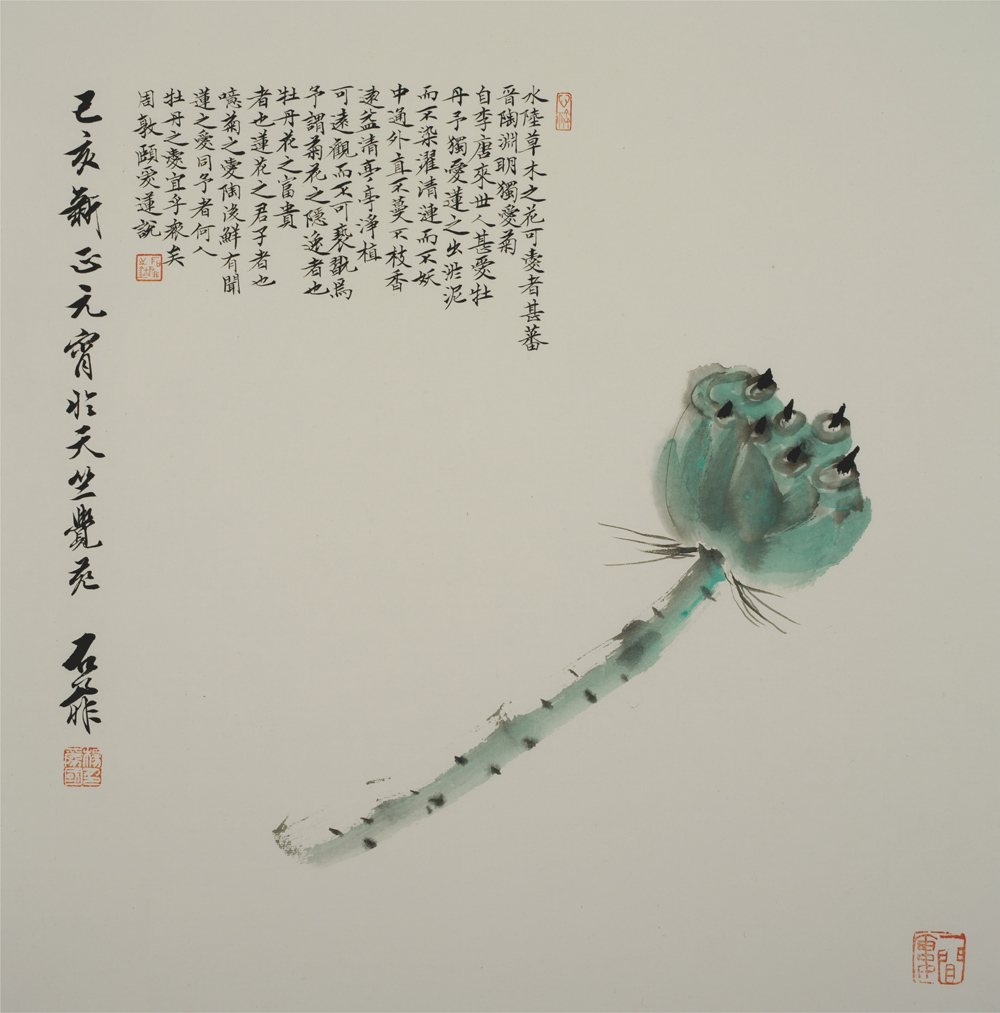 水陸草木之花可愛者甚蕃
晉陶淵明獨愛菊
自李唐來世人甚愛牡
丹予獨愛蓮之出淤泥
而不染濯清漣而不妖
中通外直不蔓不枝香
遠益清亭亭淨植
可遠觀而不可褻翫焉
予謂菊花之隱逸者也
牡丹花之富貴
者也蓮花之君子者也
噫菊之愛陶後鮮有聞
蓮之愛同予者何人
牡丹之愛宜乎衆矣
周敦頤愛蓮說
己亥新正元宵於天竺覺苑 石